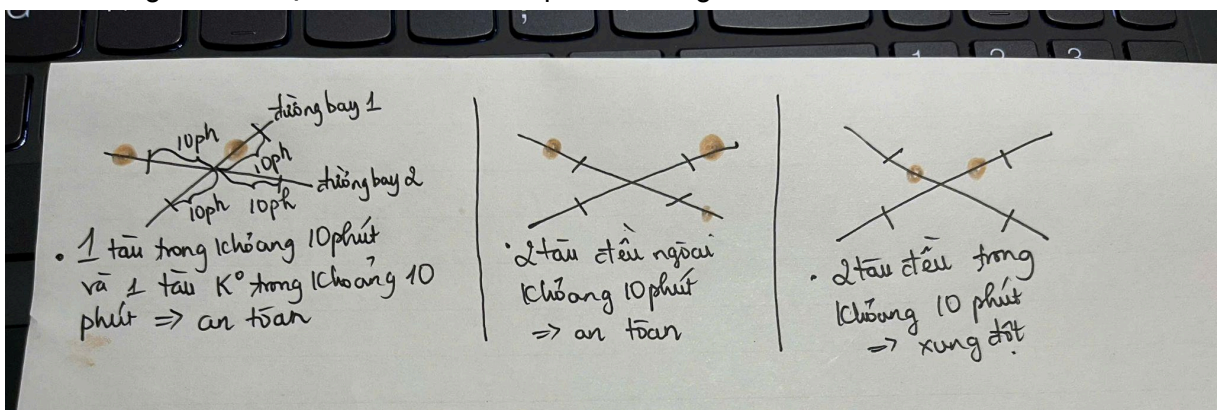 đường bay 1
10ph
10ph
đường bay 2
10ph
10ph
• 1 tàu trong khoảng 10 phút
và 1 tàu K° trong khoảng 10
phút => an toàn
• 2 tàu đều ngoài
khoảng 10 phút
=> an toàn
• 2 tàu đều trong
khoảng 10 phút
=> xung đột
1
2
3